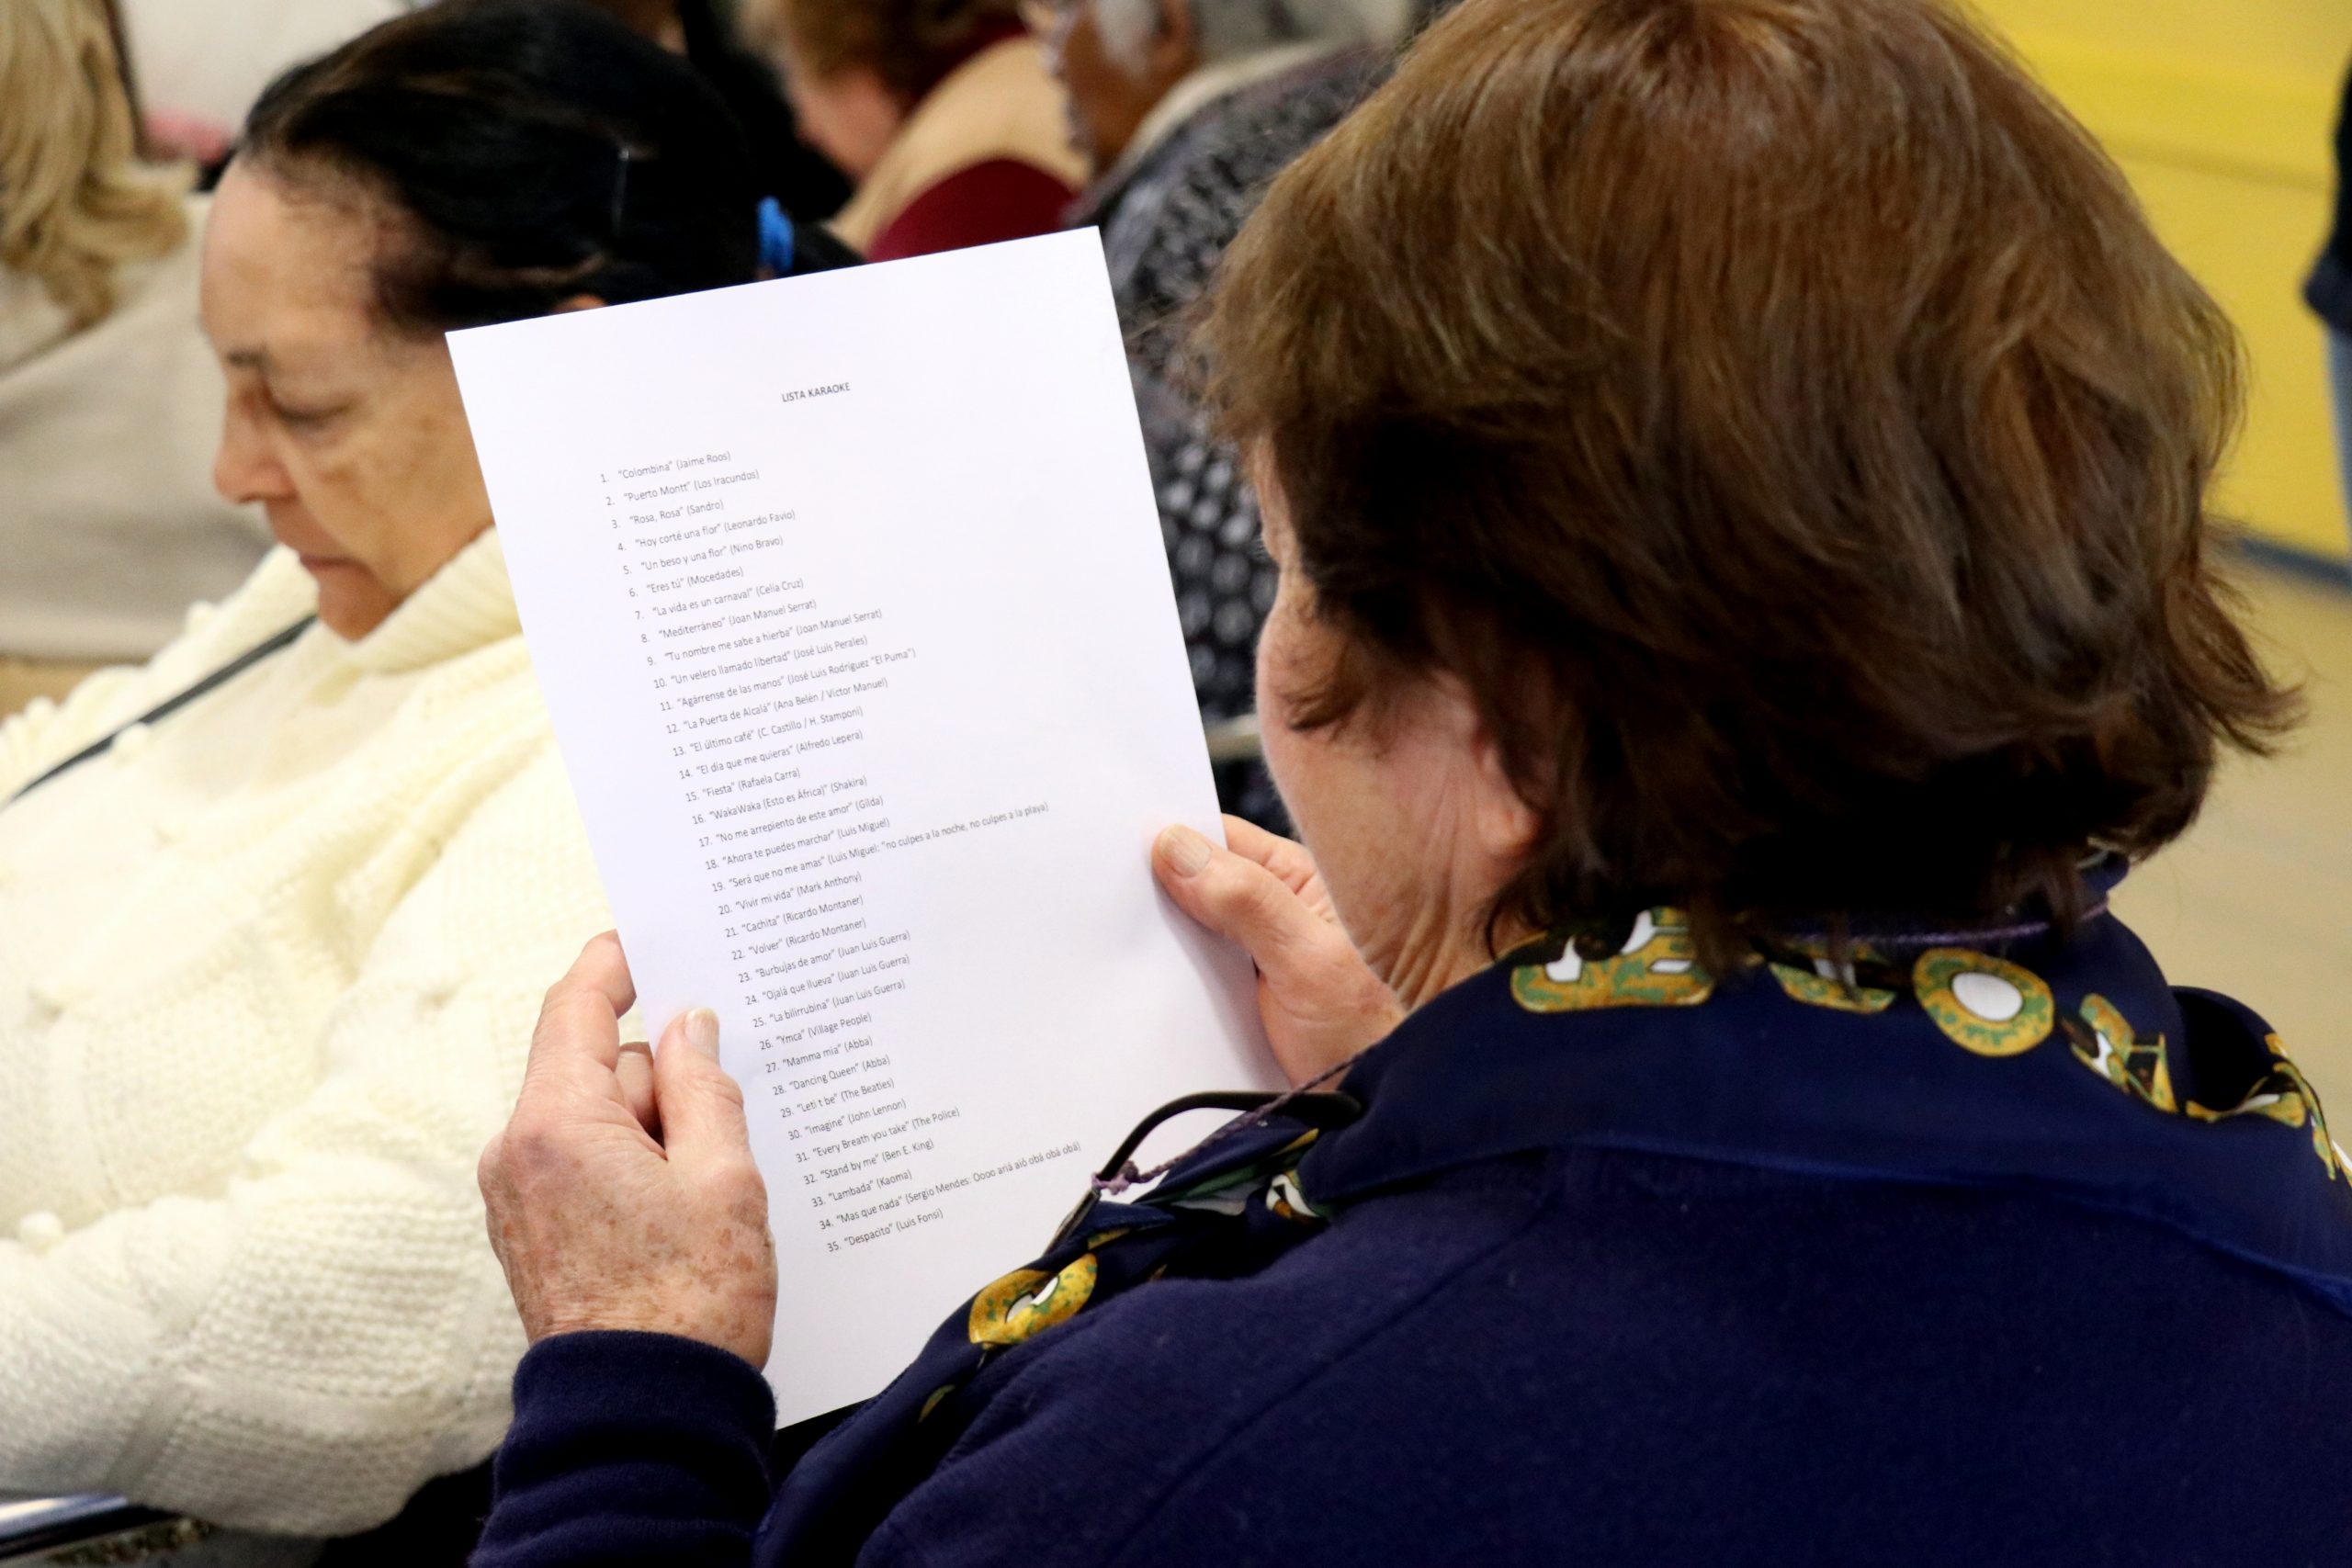 LISTA KARAOKE
1. "Colombina" (Jaime Roos)
2. "Puerto Montt" (Los Iracundos)
3. "Rosa, Rosa" (Sandro)
4. "Hoy corté una flor" (Leonardo Favio)
5. "Un beso y una flor" (Nino Bravo)
6. "Eres tú" (Mocedades)
7. "La vida es un carnaval" (Celia Cruz)
8. "Mediterráneo" (Joan Manuel Serrat)
9. "Tu nombre me sabe a hierba" (Joan Manuel Serrat)
10. "Un velero llamado libertad" (José Luis Perales)
11. "Agárrense de las manos" (José Luis Rodríguez "El Puma")
12. "La Puerta de Alcalá" (Ana Belén / Víctor Manuel)
13. "El último café" (C. Castillo / H. Stamponi)
14. "El día que me quieras" (Alfredo Lepera)
15. "Fiesta" (Rafaela Carra)
16. "WakaWaka (Esto es África)" (Shakira)
17. "No me arrepiento de este amor" (Gilda)
18. "Ahora te puedes marchar" (Luis Miguel)
19. "Será que no me amas" (Luis Miguel: "no culpes a la noche, no culpes a la playa)
20. "Vivir mi vida" (Mark Anthony)
21. "Cachita" (Ricardo Montaner)
22. "Volver" (Ricardo Montaner)
23. "Burbujas de amor" (Juan Luis Guerra)
24. "Ojalá que llueva" (Juan Luis Guerra)
25. "La bilirrubina" (Juan Luis Guerra)
26. "Ymca" (Village People)
27. "Mamma mia" (Abba)
28. "Dancing Queen" (Abba)
29. "Leti t be" (The Beatles)
30. "Imagine" (John Lennon)
31. "Every Breath you take" (The Police)
32. "Stand by me" (Ben E. King)
33. "Lambada" (Kaoma)
34. "Mas que nada" (Sergio Mendes: Oooo ariá aió obá obá obá)
35. "Despacito" (Luis Fonsi)